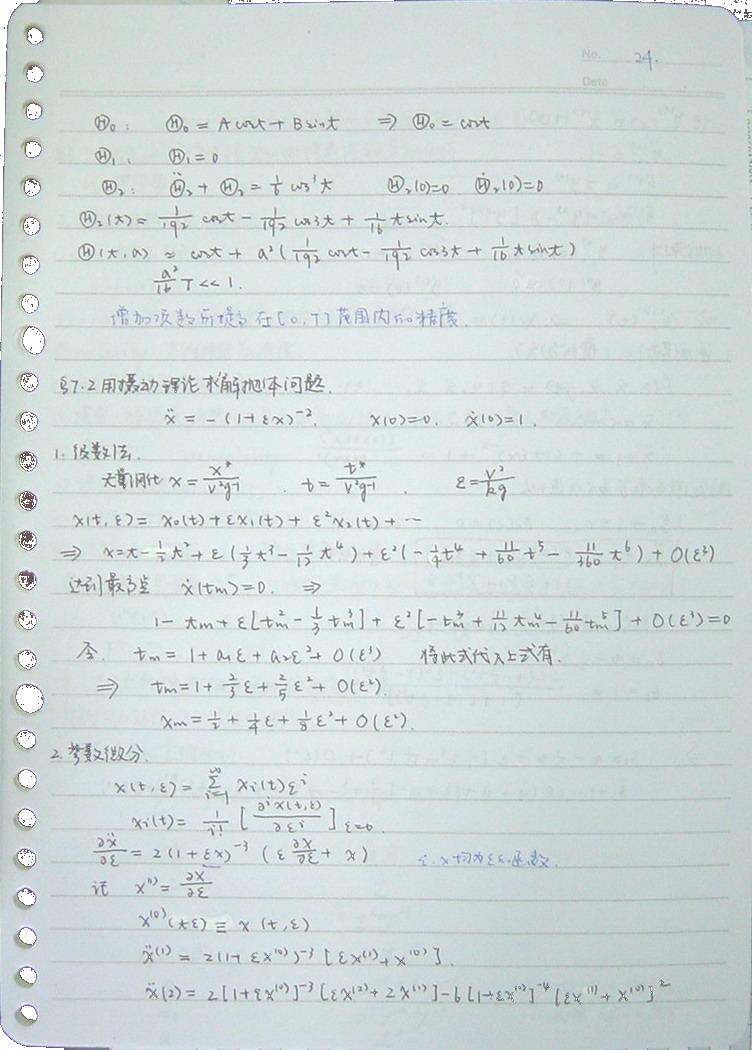 No. 24.
Date
Ⓗ₀: Ⓗ₀ = A cost + B sint ⇒ Ⓗ₀ = cost
Ⓗ₁: Ⓗ₁ = 0
Ⓗ₂: Ⓗ̈₂ + Ⓗ₂ = 1/6 cos³t Ⓗ₂(0)=0 Ⓗ̇₂(0)=0
Ⓗ₂(t) = 1/192 cost - 1/192 cos3t + 1/16 t sint.
Ⓗ(t,a) ≈ cost + a²(1/192 cost - 1/192 cos3t + 1/16 t sint)
a²/16 T << 1.
增加项数可提高在[0,T]范围内的精度.
§7.2 用摄动理论求解抛体问题.
ẍ = -(1+εx)⁻². x(0)=0. ẋ(0)=1.
1. 级数法.
无量纲化 x = x*/(v²g⁻¹). t = t*/(v²g⁻¹). ε = v²/(Rg)
x(t,ε) = x₀(t) + εx₁(t) + ε²x₂(t) + ⋯
⇒ x = t - 1/2 t² + ε(1/3 t³ - 1/12 t⁴) + ε²(-1/4 t⁴ + 11/60 t⁵ - 11/360 t⁶) + O(ε³)
达到最高点 ẋ(tm)=0. ⇒
1 - tm + ε[tm² - 1/3 tm³] + ε²[-tm³ + 11/12 tm⁴ - 11/60 tm⁵] + O(ε³) = 0
令. tm = 1 + a₁ε + a₂ε² + O(ε³) 将此式代入上式有.
⇒ tm = 1 + 2/3 ε + 2/5 ε² + O(ε³).
xm = 1/2 + 1/4 ε + 1/8 ε² + O(ε³).
2. 参数微分.
x(t,ε) = ∑_{i=1}^{∞} xi(t)εⁱ
xi(t) = 1/i! [∂ⁱx(t,ε)/∂εⁱ]ε=0.
∂ẍ/∂ε = 2(1+εx)⁻³ (ε ∂x/∂ε + x) ε. x均为ε的函数.
记 x⁽¹⁾ = ∂x/∂ε
x⁽⁰⁾(tε) ≡ x(t,ε)
ẍ⁽¹⁾ = 2(1+εx⁽⁰⁾)⁻³ [εx⁽¹⁾+x⁽⁰⁾].
ẍ(2) = 2[1+εx⁽⁰⁾]⁻³ [εx⁽²⁾+2x⁽¹⁾] - 6[1+εx⁽⁰⁾]⁻⁴ [εx⁽¹⁾+x⁽⁰⁾]²